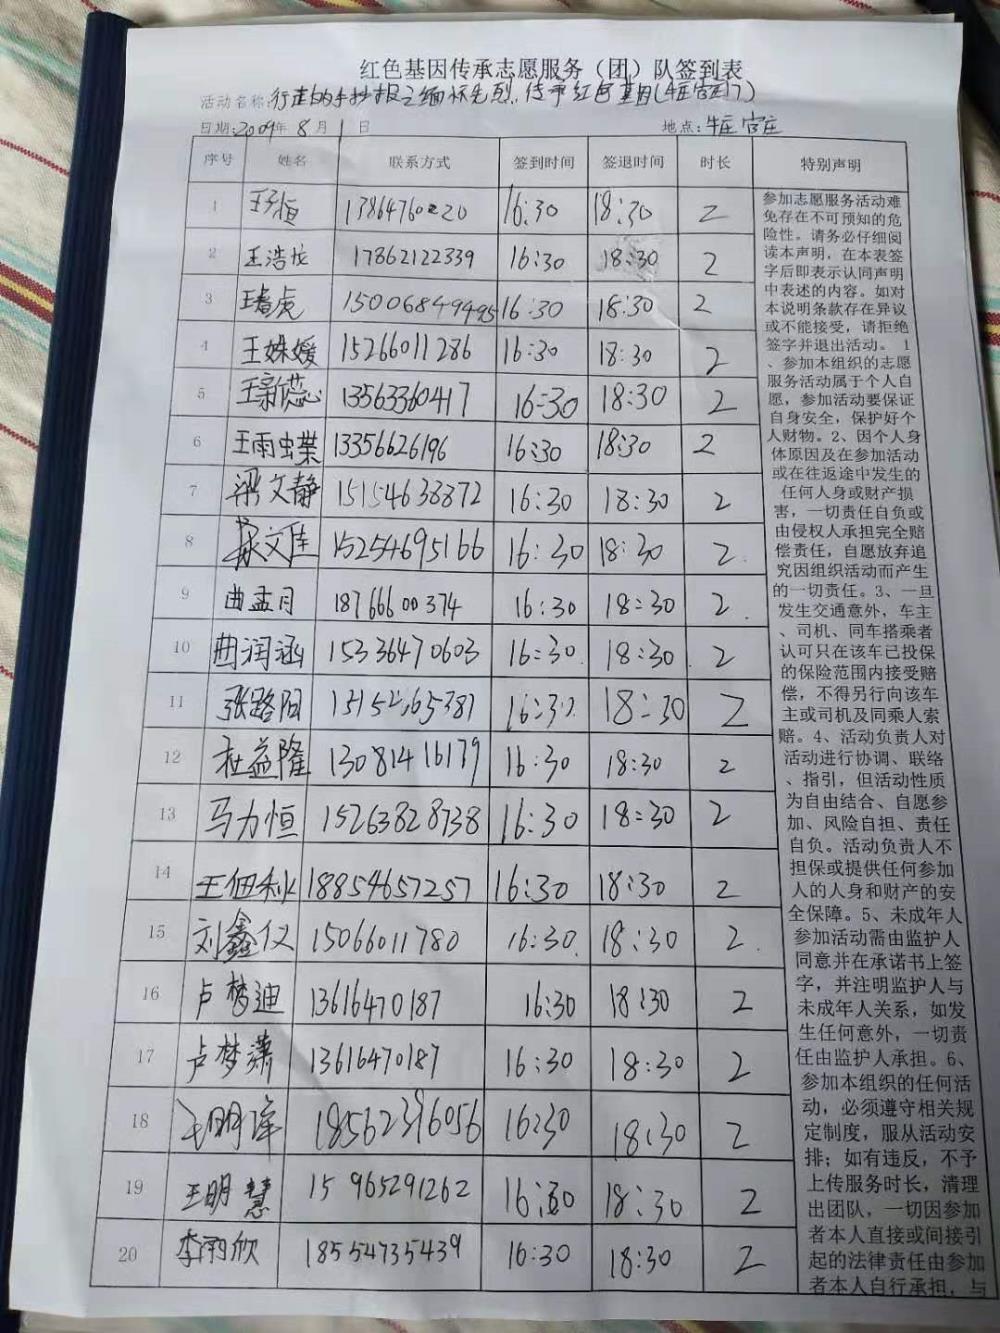 红色基因传承志愿服务（团）队签到表
活动名称:行走的手抄报之缅怀先烈,传承红色基因(牛庄官庄)
日期:2009年8月1日 地点:牛庄官庄
序号 姓名 联系方式 签到时间 签退时间 时长 特别声明
1 王子恒 13864760220 16:30 18:30 2
2 王浩龙 17862122339 16:30 18:30 2
3 王睿虎 15006849495 16:30 18:30 2
4 王姝媛 15266011286 16:30 18:30 2
5 王新蕊 13563360417 16:30 18:30 2
6 王雨蝶 13356626196 16:30 18:30 2
7 梁文静 15154638872 16:30 18:30 2
8 文佳 15254695166 16:30 18:30 2
9 曲孟月 18766600374 16:30 18:30 2
10 曲润涵 15336470603 16:30 18:30 2
11 张路阳 16:30 18:30 2
12 杜益隆 13081416179 16:30 18:30 2
13 马力恒 15263828738 16:30 18:30 2
14 王佃秋 18854657257 16:30 18:30 2
15 刘鑫仪 15066011780 16:30 18:30 2
16 卢梦迪 13616470187 16:30 18:30 2
17 卢梦潇 13616470187 16:30 18:30 2
18 王明泽 18562396056 16:30 18:30 2
19 王明慧 15965291262 16:30 18:30 2
20 李雨欣 18554735439 16:30 18:30 2
参加志愿服务活动难
免存在不可预知的危
险性。请务必仔细阅
读本声明，在本表签
字后即表示认同声明
中表述的内容。如对
本说明条款存在异议
或不能接受，请拒绝
签字并退出活动。 1
、参加本组织的志愿
服务活动属于个人自
愿，参加活动要保证
自身安全，保护好个
人财物。2、因个人身
体原因及在参加活动
或在往返途中发生的
任何人身或财产损
害，一切责任自负或
由侵权人承担完全赔
偿责任，自愿放弃追
究因组织活动而产生
的一切责任。3、一旦
发生交通意外，车主
、司机、同车搭乘者
认可只在该车已投保
的保险范围内接受赔
偿，不得另行向该车
主或司机及同乘人索
赔。4、活动负责人对
活动进行协调、联络
、指引，但活动性质
为自由结合、自愿参
加、风险自担、责任
自负。活动负责人不
担保或提供任何参加
人的人身和财产的安
全保障。5、未成年人
参加活动需由监护人
同意并在承诺书上签
字，并注明监护人与
未成年人关系，如发
生任何意外，一切责
任由监护人承担。6、
参加本组织的任何活
动，必须遵守相关规
定制度，服从活动安
排；如有违反，不予
上传服务时长，清理
出团队，一切因参加
者本人直接或间接引
起的法律责任由参加
者本人自行承担，与